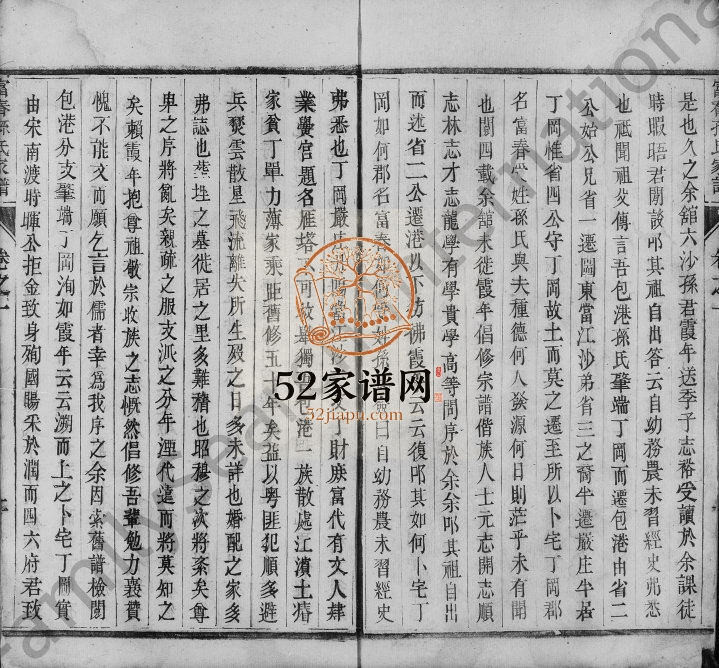 是也久之余舘六沙孫君霞年送季子志裕受讀於余課徒
時暇晤君閒談叩其祖自出答云自幼務農未習經史弗悉
也祗聞祖父傳言吾包港孫氏肇端丁岡而遷包港由省二
公始公兄省一遷圌東當江沙弟省三之裔半遷嚴庄半居
丁岡惟省四公守丁岡故土而莫之遷至所以卜宅丁岡郡
名富春 姓孫氏與夫種德何人發源何日則茫乎未有聞
也閱四載余舘未徙霞年倡修宗譜偕族人士元志開志順
志林志才志龍學有學貴學高等問序於余余叩其祖自出
而述省二公遷港以下彷彿霞 云云復叩其如何卜宅丁
岡如何郡名富春如何 姓孫 曰自幼務農未習經史
弗悉也丁岡嚴庄 當江沙 丁財庶富代有文人肆
業黌宮題名雁塔 可枚舉獨 包港一族散處江濱土瘠
家貧丁單力薄家乘 距舊修五十 年矣益以粵匪犯順多避
兵燹雲散星飛流離失所生殁之日多未詳也婚配之家多
弗誌也塟埋之墓徙居之里多難稽也昭穆之次將紊矣尊
卑之序將亂矣親疏之服支派之分年湮代遠而將莫知之
矣賴霞年抱尊祖敬宗收族之志慨然倡修吾輩勉力襄贊
愧不能文而願乞言於儒者幸爲我序之余因索舊譜檢閱
包港分支肇端丁岡洵如霞年云云溯而上之卜宅丁岡實
由宋南渡時暉公拒金致身殉國賜采於潤而四六府君致
富春孫氏家譜
卷之一
52家谱网
52jiapu.com
FamilySearch International